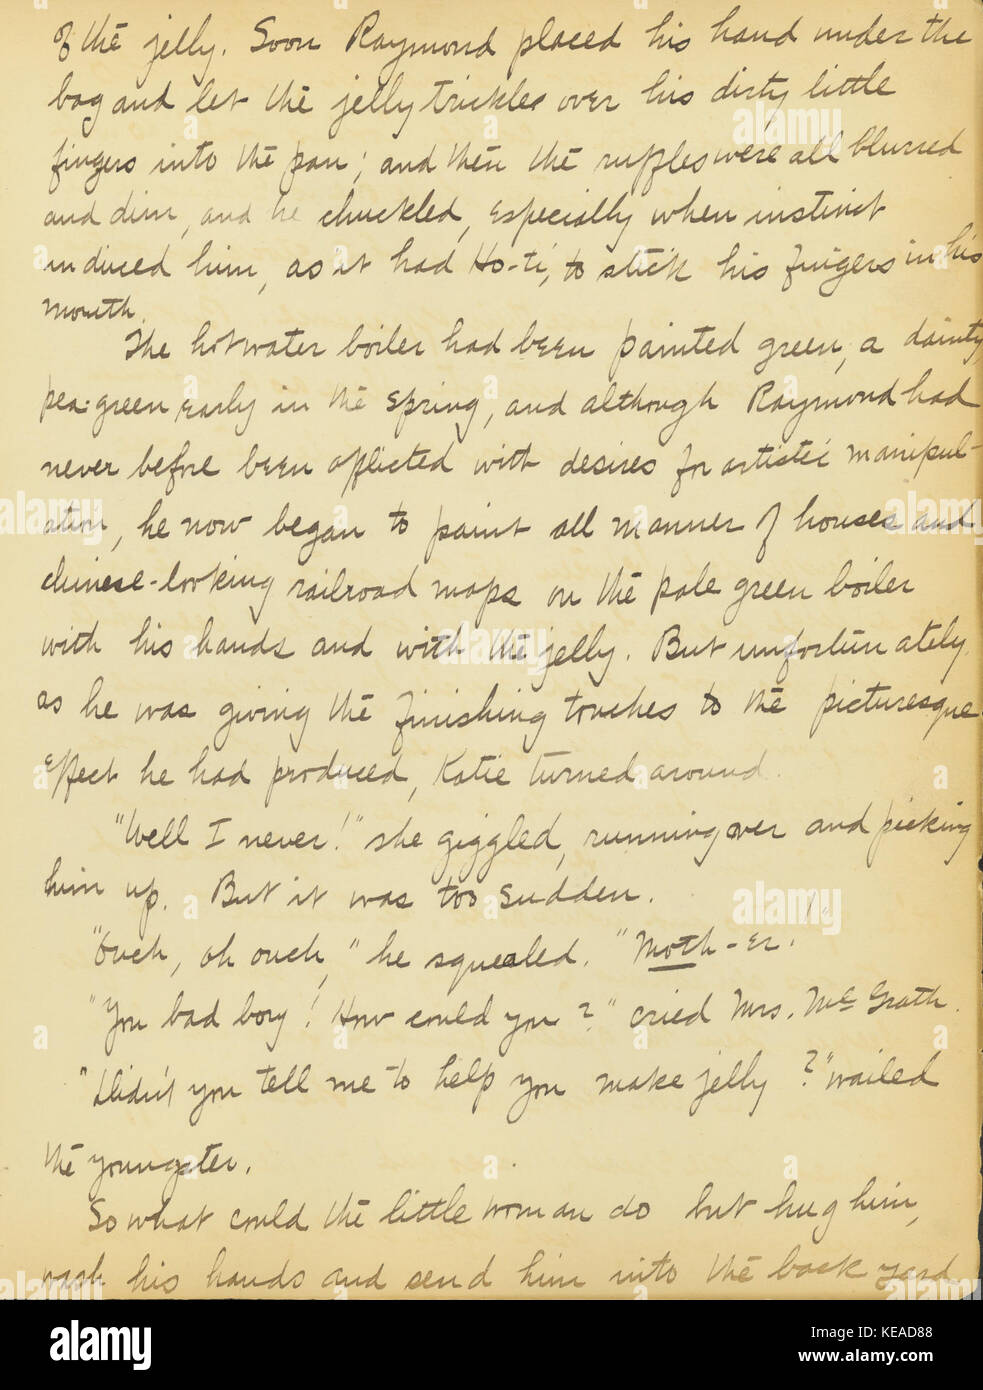 of the jelly. Soon Raymond placed his hand under the
bag and let the jelly trickle over his dirty little
fingers into the pan; and then the ruffles were all blurred
and dim, and he chuckled, especially when instinct
induced him, as it had Ho-ti, to stick his fingers in his
mouth.
The hot water boiler had been painted green, a dainty
pea-green early in the spring, and although Raymond had
never before been afflicted with desires for artistic manipul-
ation, he now began to paint all manner of houses and
chinese-looking railroad maps on the pale green boiler
with his hands and with the jelly. But unfortunately,
as he was giving the finishing touches to the picturesque
effect he had produced, Katie turned around.
"Well I never!" she giggled, running over and picking
him up. But it was too sudden.
"Ouch, oh ouch," he squealed. "Moth-er!"
"You bad boy! How could you?" cried Mrs. McGrath.
"Didn't you tell me to help you make jelly?" wailed
the youngster.
So what could the little woman do but hug him,
wash his hands and send him into the back yard
alamy
Image ID: KEAD88
www.alamy.com